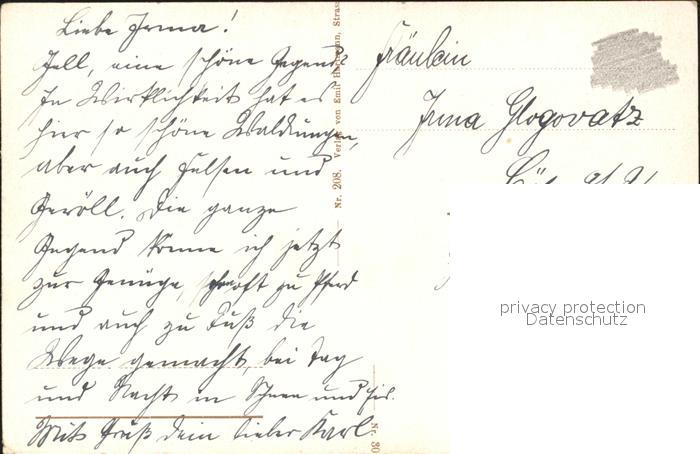 Liebe Irma!
Gell, eine schöne Gegend?
In Wirklichkeit hat es
hier so schöne Waldungen,
aber auch Felsen und
Geröll. Die ganze
Gegend kenne ich jetzt
zur Genüge, schon oft zu Pferd
und auch zu Fuß die
Wege gemacht, bei Tag
und Nacht in Schnee und Eis.
Mit Gruß dein lieber Karl
Nr. 208. Verlag von Emil Hartmann, Strass
Nr. 30
Fräulein
Irma Glogovatz
privacy protection
Datenschutz